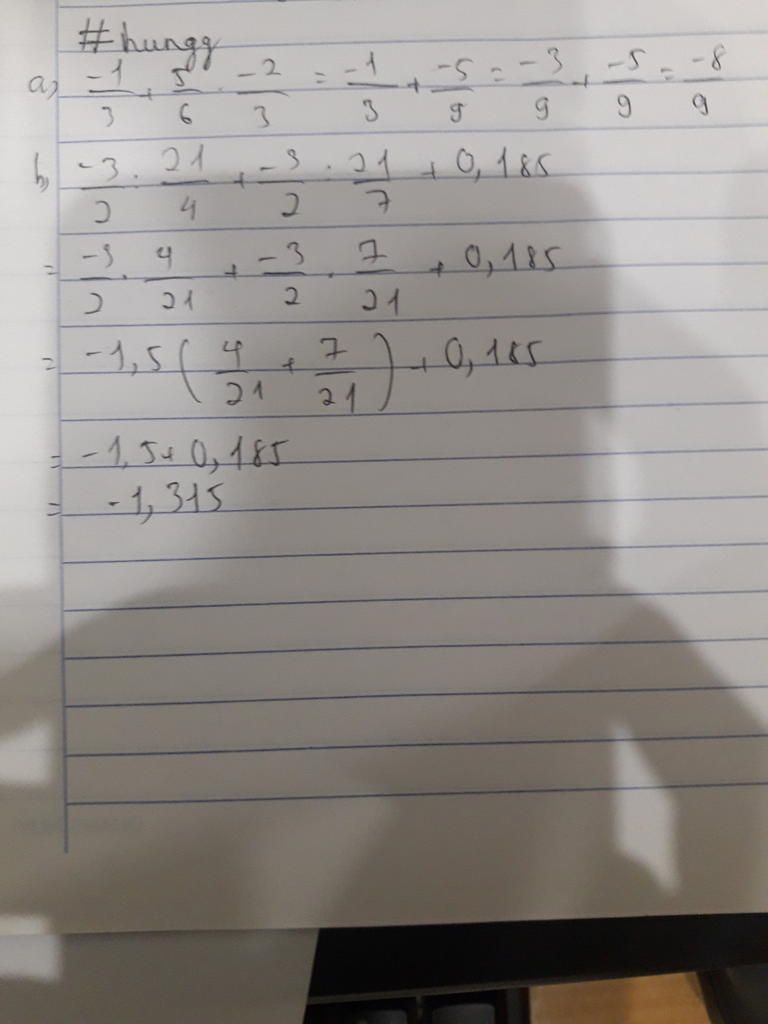 #hungg
a) -1/3 + 5/6 . -2/3 = -1/3 + -5/9 = -3/9 + -5/9 = -8/9
b) -3/2 : 21/4 + -3/2 : 21/7 + 0,185
= -3/2 . 4/21 + -3/2 . 7/21 + 0,185
= -1,5 ( 4/21 + 7/21 ) + 0,185
= -1,5 + 0,185
= -1,315